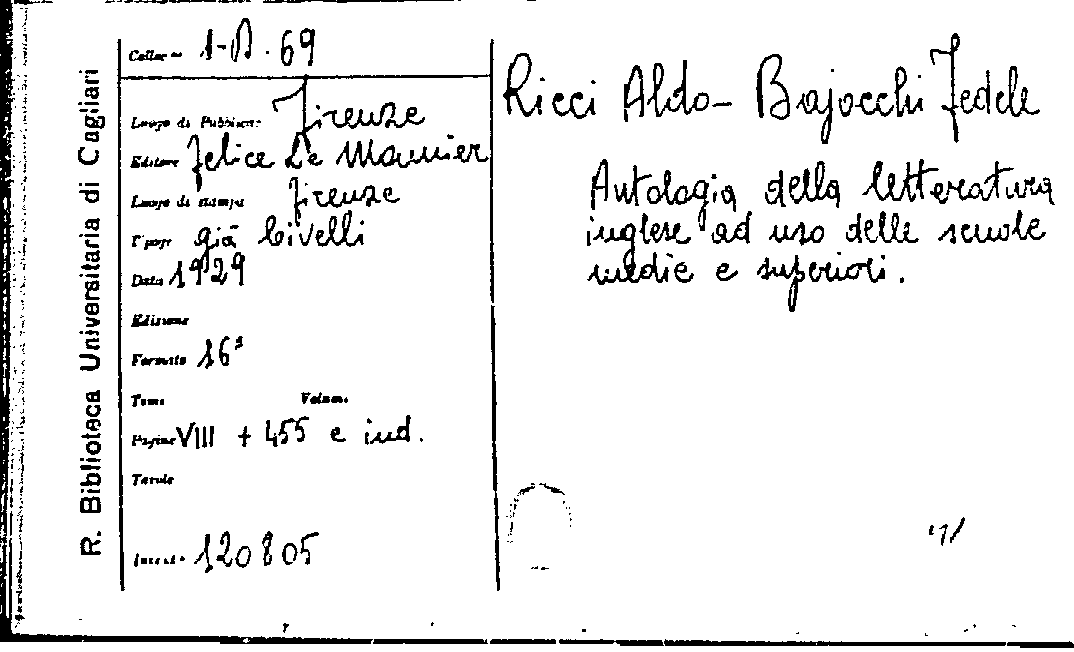 R. Biblioteca Universitaria di Cagliari
Collocaz. 1-D. 69
Luogo di Pubblicaz. Firenze
Editore Felice Le Mounier
Luogo di stampa Firenze
Tipogr. già Civelli
Data 1929
Edizione
Formato 16°
Tomo Volume
Pagine VIII + 455 e ind.
Tavole
Invent. 120805
Ricci Aldo - Bajocchi Fedele
Antologia della letteratura
inglese ad uso delle scuole
medie e superiori.